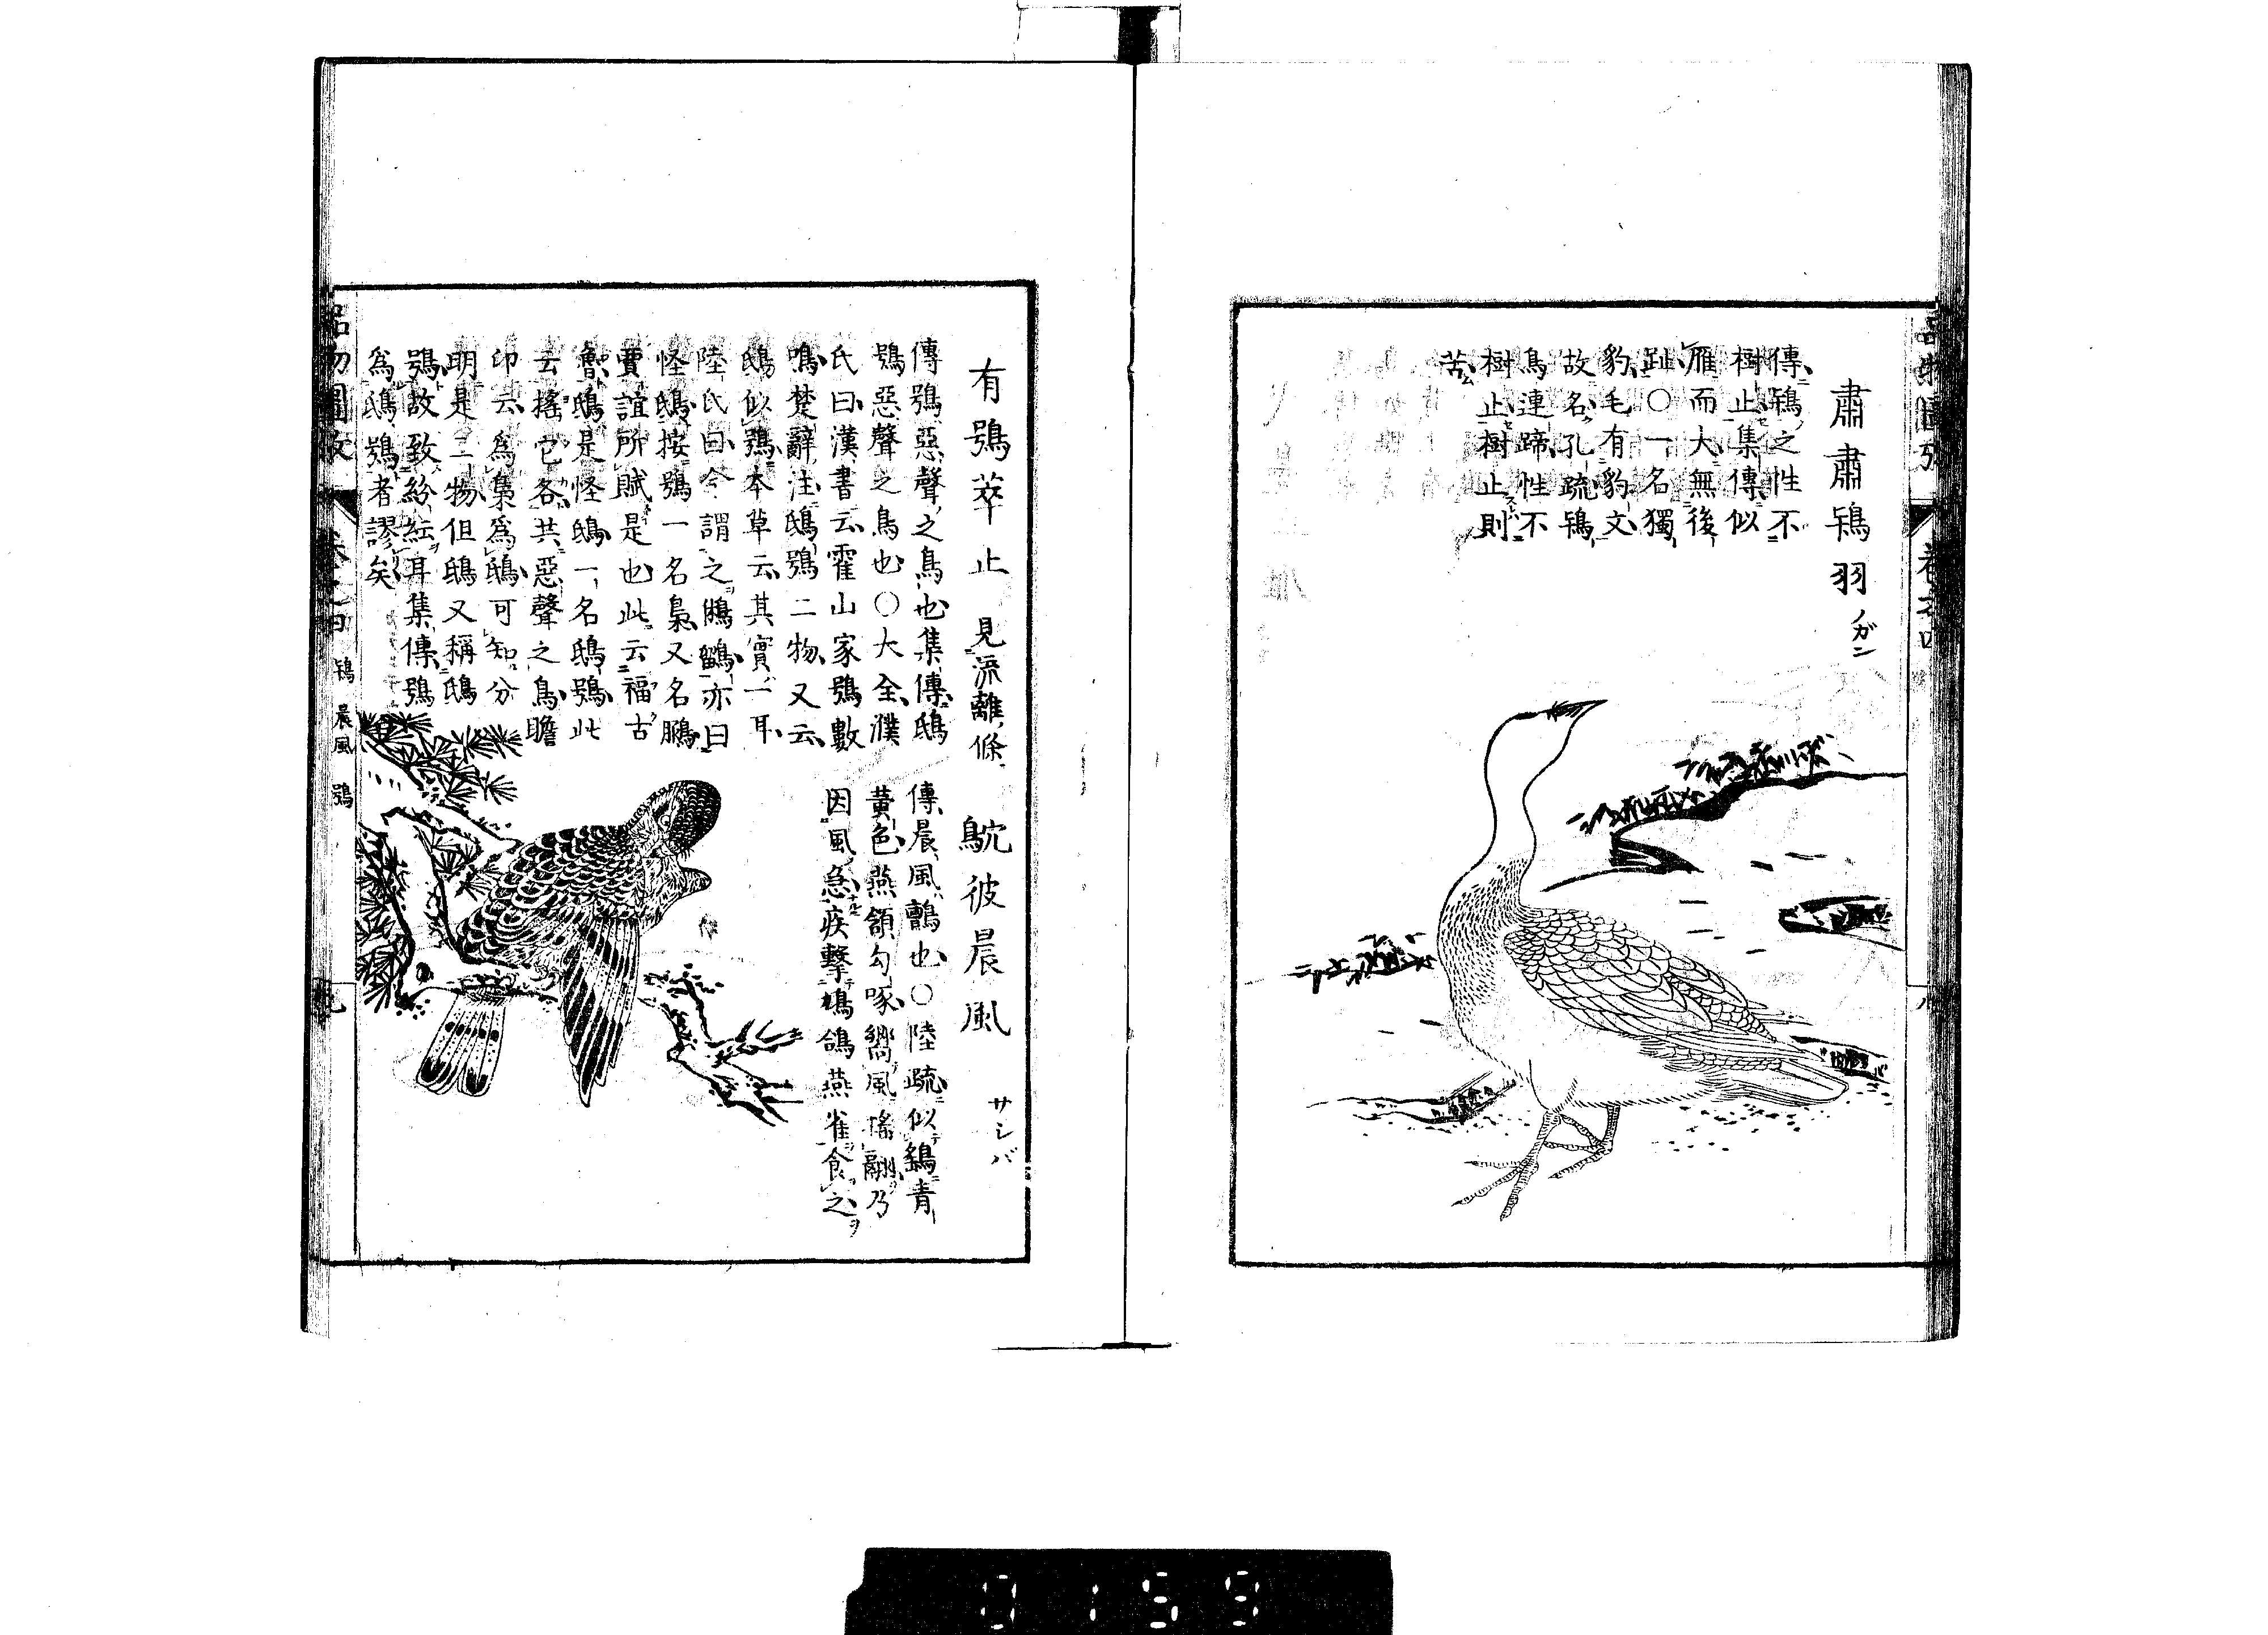 肅肅鴇羽 ノガン
傳鴇之性不
樹止集傳似
雁而大無後
趾○一名獨
豹毛有豹文
故名孔疏鴇
鳥連蹄性不
樹止樹止則
苦
品物圖攷 卷之四
八
有鴞萃止 見流離條
傳鴞惡聲之鳥也集傳鴟
鴞惡聲之鳥也○大全濮
氏曰漢書云霍山家鴞數
鳴楚辭注鴟鴞二物又云
鴟似鴞本草云其實一耳
陸氏曰今謂之鵩鶹亦曰
怪鴟按鴞一名梟又名鵩
賈誼所賦是也此云福古
鴟是怪鴟一名鴟鴞此
云搖它各共惡聲之鳥瞻
卬云爲梟爲鴟可知分
明是二物但鴟又稱鴟
鴞故致紛紜耳集傳鴞
爲鴟鴞者謬矣
鴥彼晨風 サシバ
傳晨風鸇也○陸疏似鷂青
黃色燕頷勾啄嚮風搖翮乃
因風急疾擊鳩鴿燕雀食之
品物圖攷 卷之四 鴇 晨風 鴞
九
0159